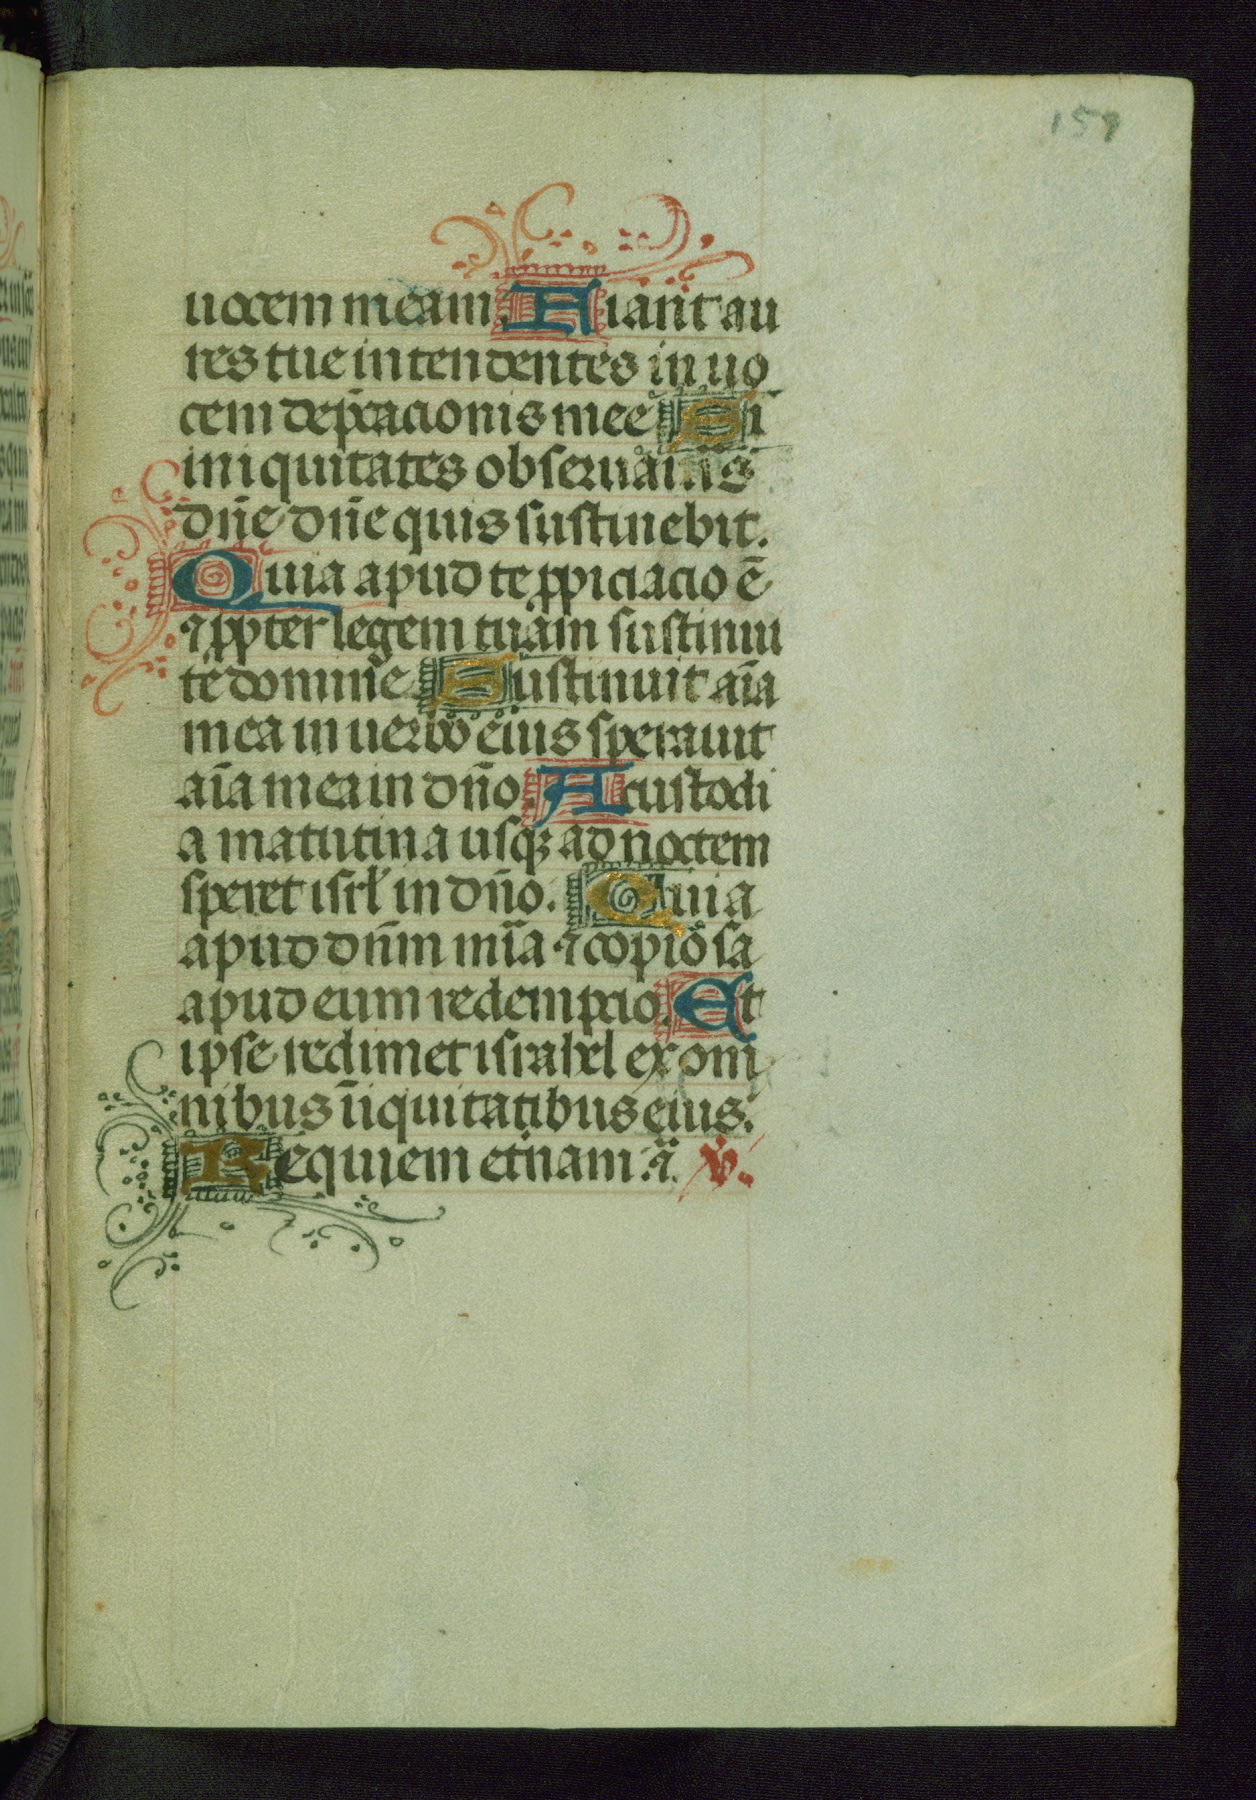 159
uocem meam. Fiant au
res tue intendentes in uo
cem dep̄cacionis mee Si
iniquitates obseruaueris
dn̄e dn̄e quis sustinebit.
Quia apud te ꝓpiciacio ē
⁊ ꝓpter legem tuam sustinui
te domine Sustinuit aīa
mea in uerbo eius sperauit
aīa mea in dn̄o. A custodi
a matutina usqꝫ ad noctem
speret isrl̄ in dn̄o. Quia
apud dn̄m mīa ⁊ copiosa
apud eum redempcio. Et
ipse redimet israhel ex om
nibus īiquitatibus eius.
Requiem et̄nam .⁊. v.